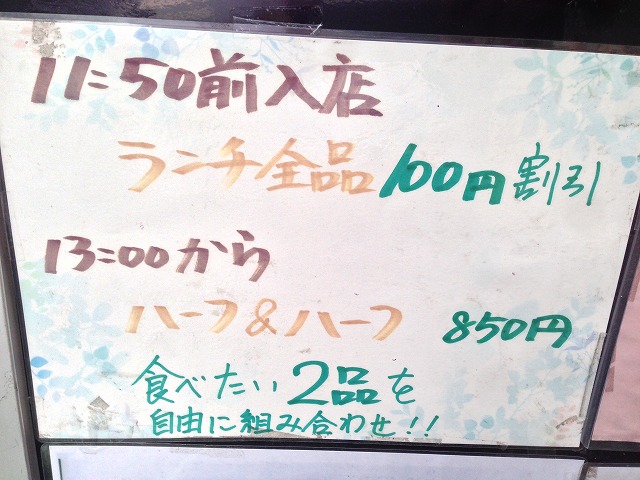 11:50前入店
ランチ全品100円割引
13:00から
ハーフ&ハーフ 850円
食べたい2品を
自由に組み合わせ!!